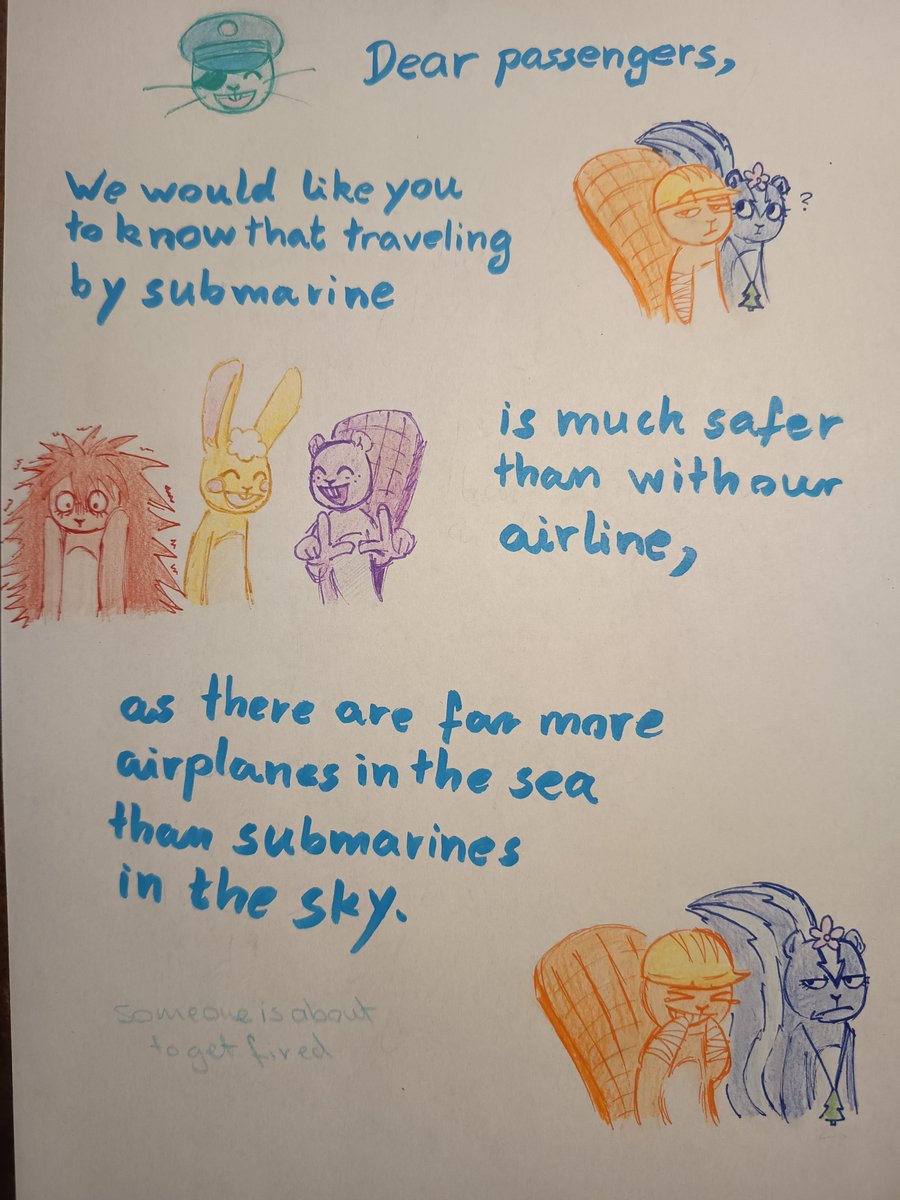 Dear passengers,
?
We would like you
to know that traveling
by submarine
is much safer
than with our
airline,
as there are far more
airplanes in the sea
than submarines
in the sky.
someone is about
to get fired